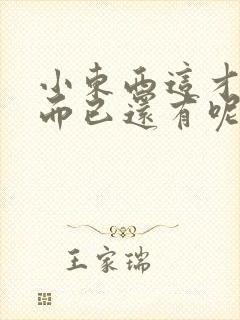 小東西這才
而已還有呢
王家瑞